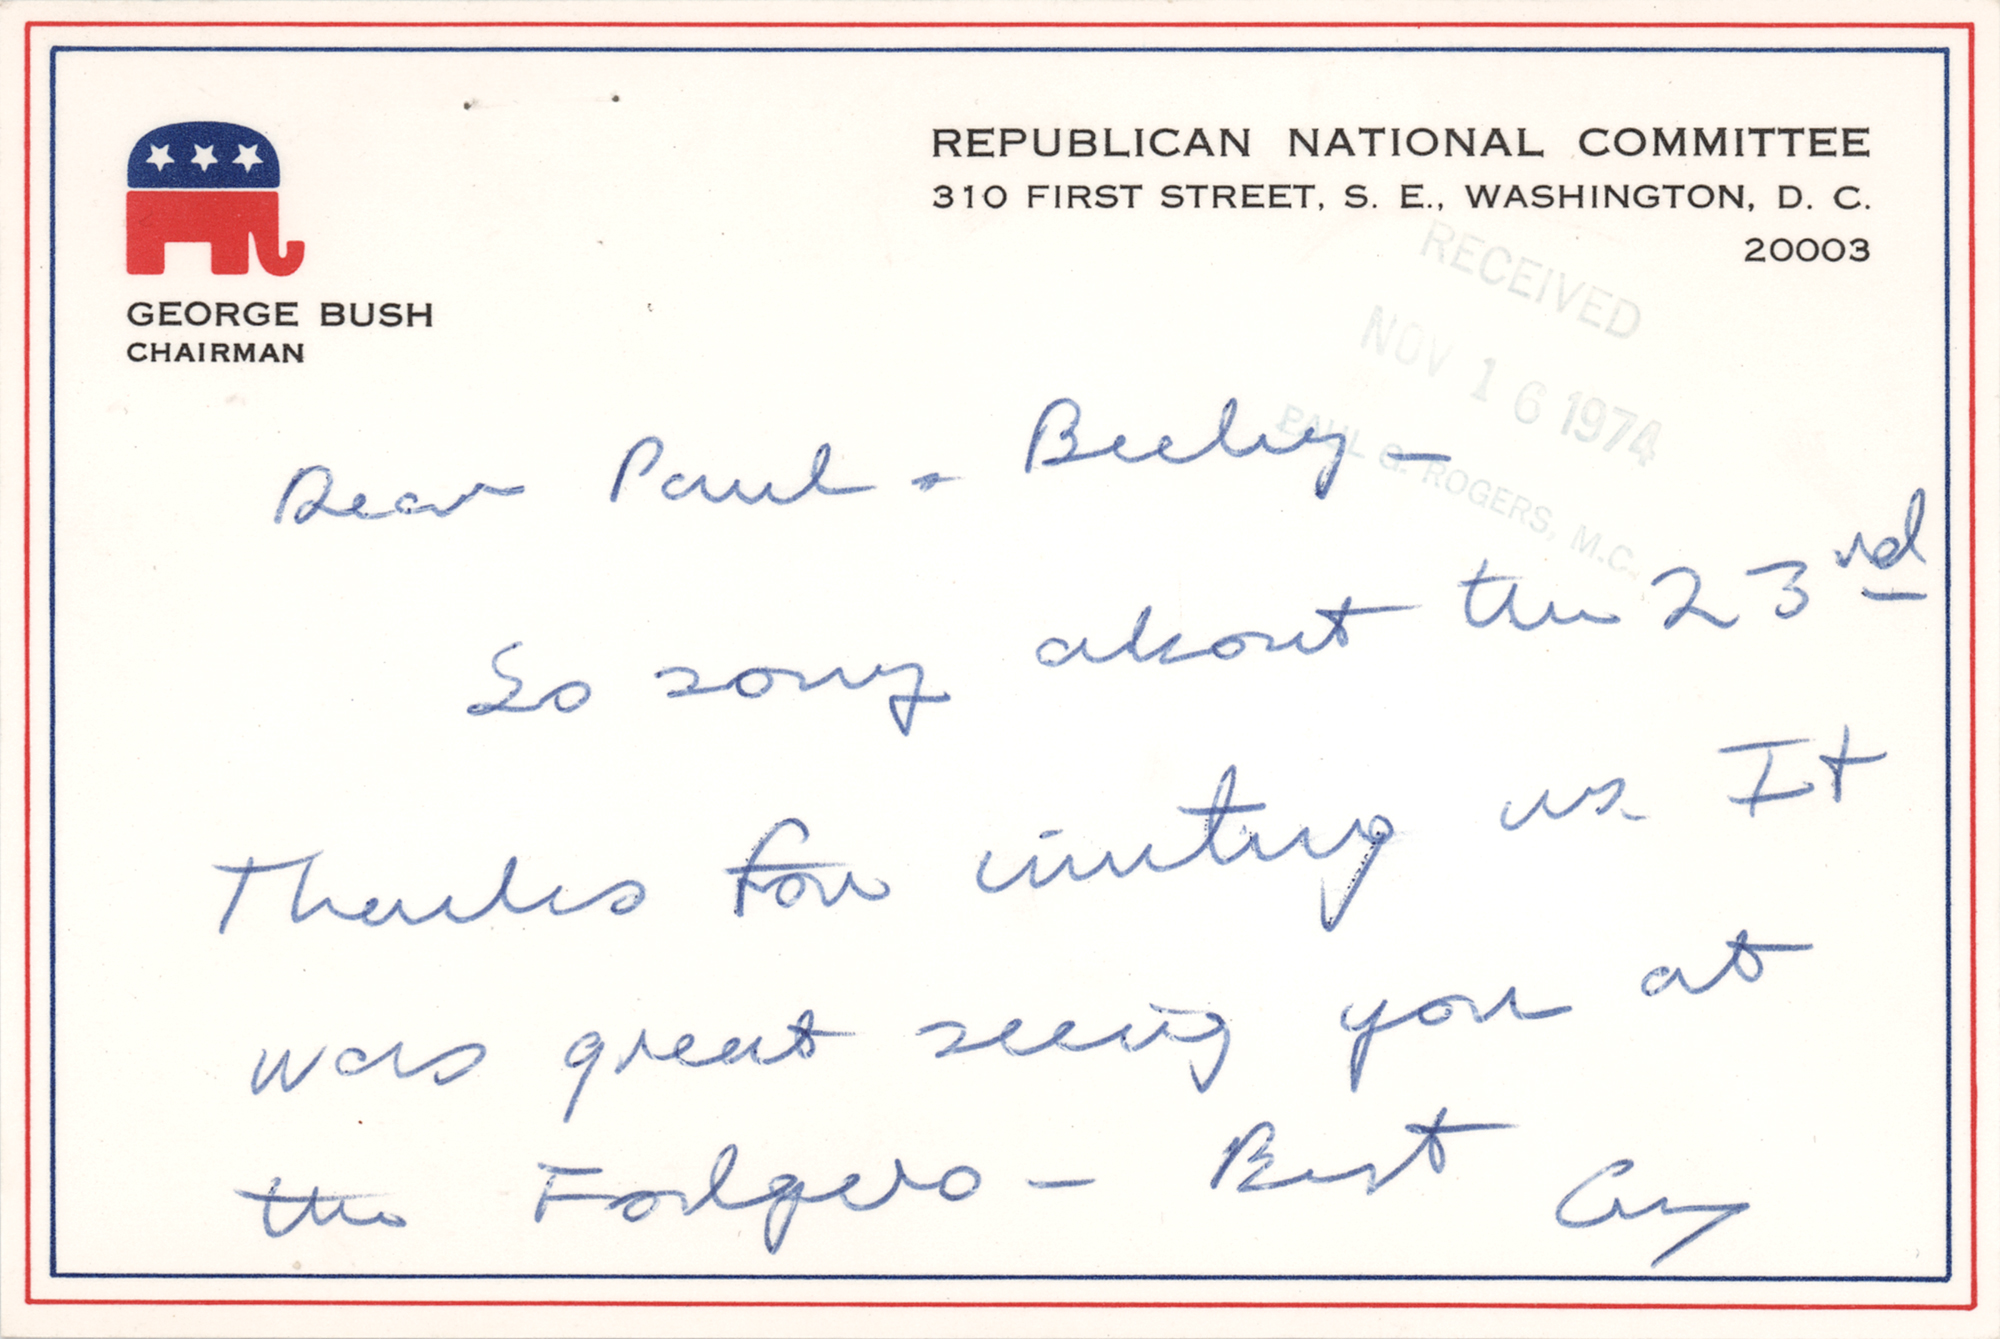 REPUBLICAN NATIONAL COMMITTEE
310 FIRST STREET, S. E., WASHINGTON, D. C.
20003
GEORGE BUSH
CHAIRMAN
RECEIVED
NOV 16 1974
PAUL G. ROGERS, M.C.
Dear Paul + Becky -
So sorry about the 23rd
Thanks for inviting us It
was great seeing you at
the Fodgers - Best